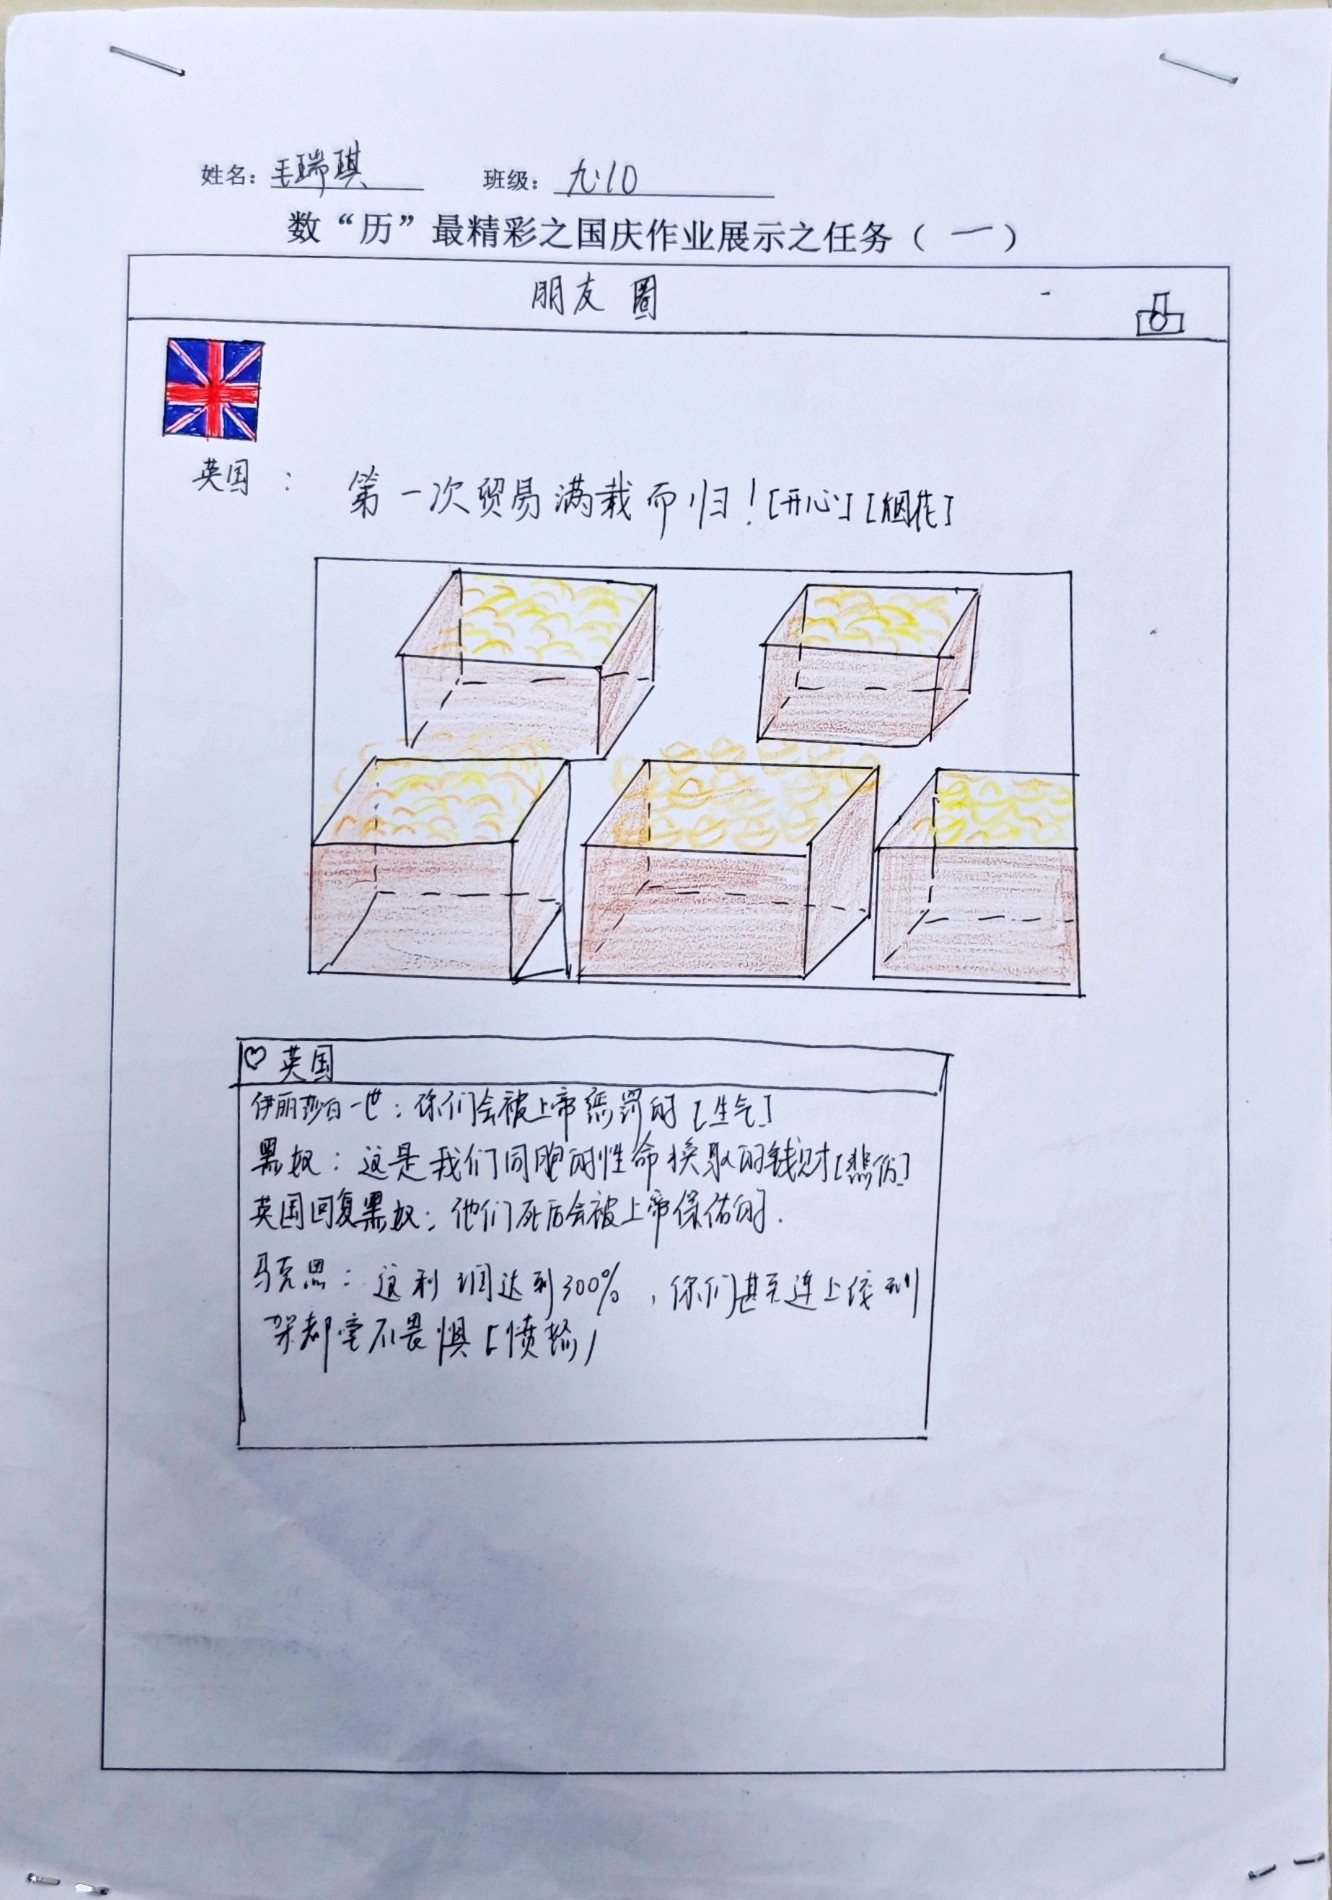 姓名：毛瑞琪 班级：九.10
数“历”最精彩之国庆作业展示之任务（一）
朋友圈
英国： 第一次贸易满载而归！[开心][烟花]
♡ 英国
伊丽莎白一世：你们会被上帝惩罚的[生气]
黑奴：这是我们同胞的性命换取的钱财[悲伤]
英国回复黑奴：他们死后会被上帝保佑的.
马克思：这利润达到300%，你们甚至连上绞刑
架都毫不畏惧[愤怒]